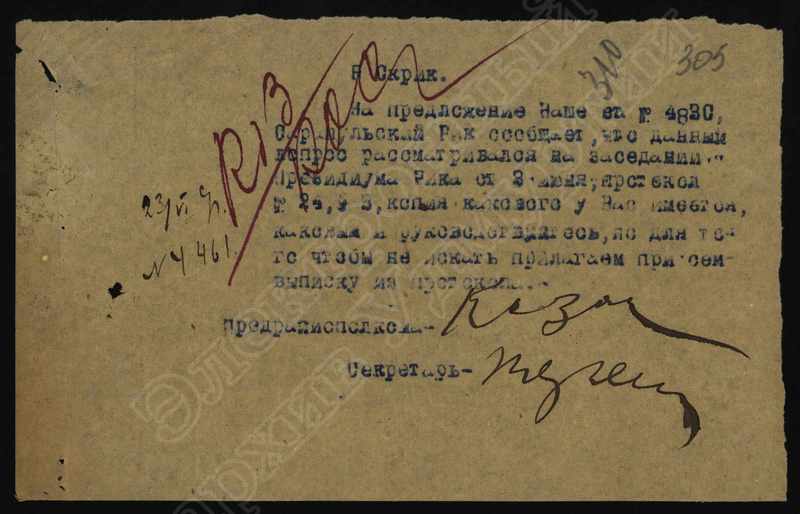 310
305
В Скрик.
На предложение Ваше за № 4830,
Сарапульский Рик сообщает, что данный
вопрос рассматривался на заседании
Президиума Рика от 3 июня, протокол
№ 24, § 3, копия какового у Вас имеется,
каковым и руководствуйтесь, но для то-
го чтобы не искать прилагаем при сем
выписку из протокола.
23/VI
N 4461.
Предрайисполкома-
Секретарь-